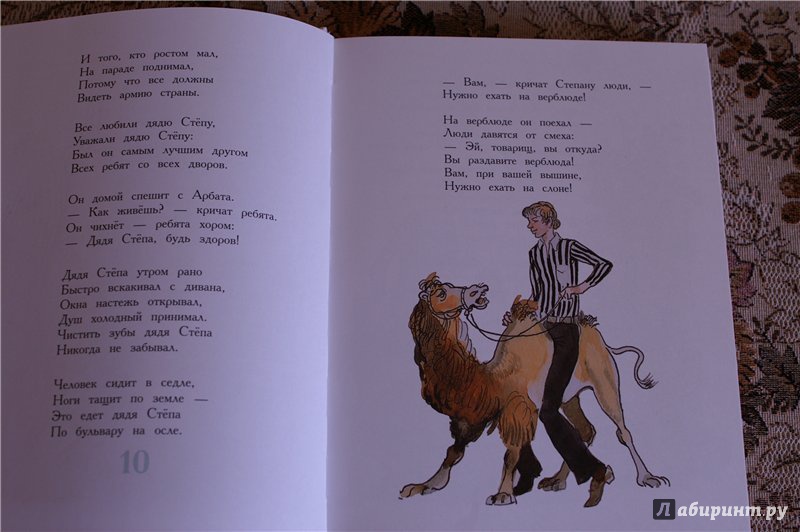 И того, кто ростом мал,
На параде поднимал,
Потому что все должны
Видеть армию страны.
Все любили дядю Стёпу,
Уважали дядю Стёпу:
Был он самым лучшим другом
Всех ребят со всех дворов.
Он домой спешит с Арбата.
— Как живёшь? — кричат ребята.
Он чихнёт — ребята хором:
— Дядя Стёпа, будь здоров!
Дядя Стёпа утром рано
Быстро вскакивал с дивана,
Окна настежь открывал,
Душ холодный принимал.
Чистить зубы дядя Стёпа
Никогда не забывал.
Человек сидит в седле,
Ноги тащит по земле —
Это едет дядя Стёпа
По бульвару на осле.
10
— Вам, — кричат Степану люди, —
Нужно ехать на верблюде!
На верблюде он поехал —
Люди давятся от смеха:
— Эй, товарищ, вы откуда?
Вы раздавите верблюда!
Вам, при вашей вышине,
Нужно ехать на слоне!
Лабиринт.ру